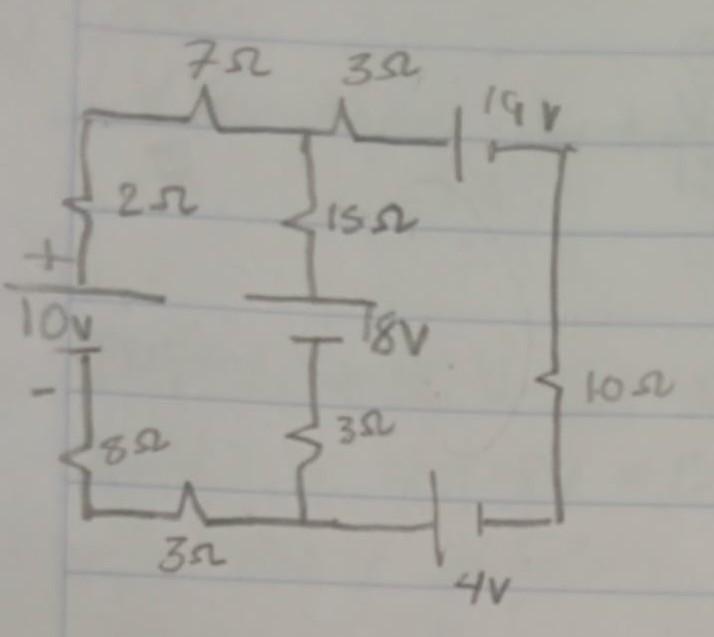 7Ω 3Ω 19V
2Ω 15Ω
+
10V 8V
-
10Ω
8Ω 3Ω
3Ω
4V